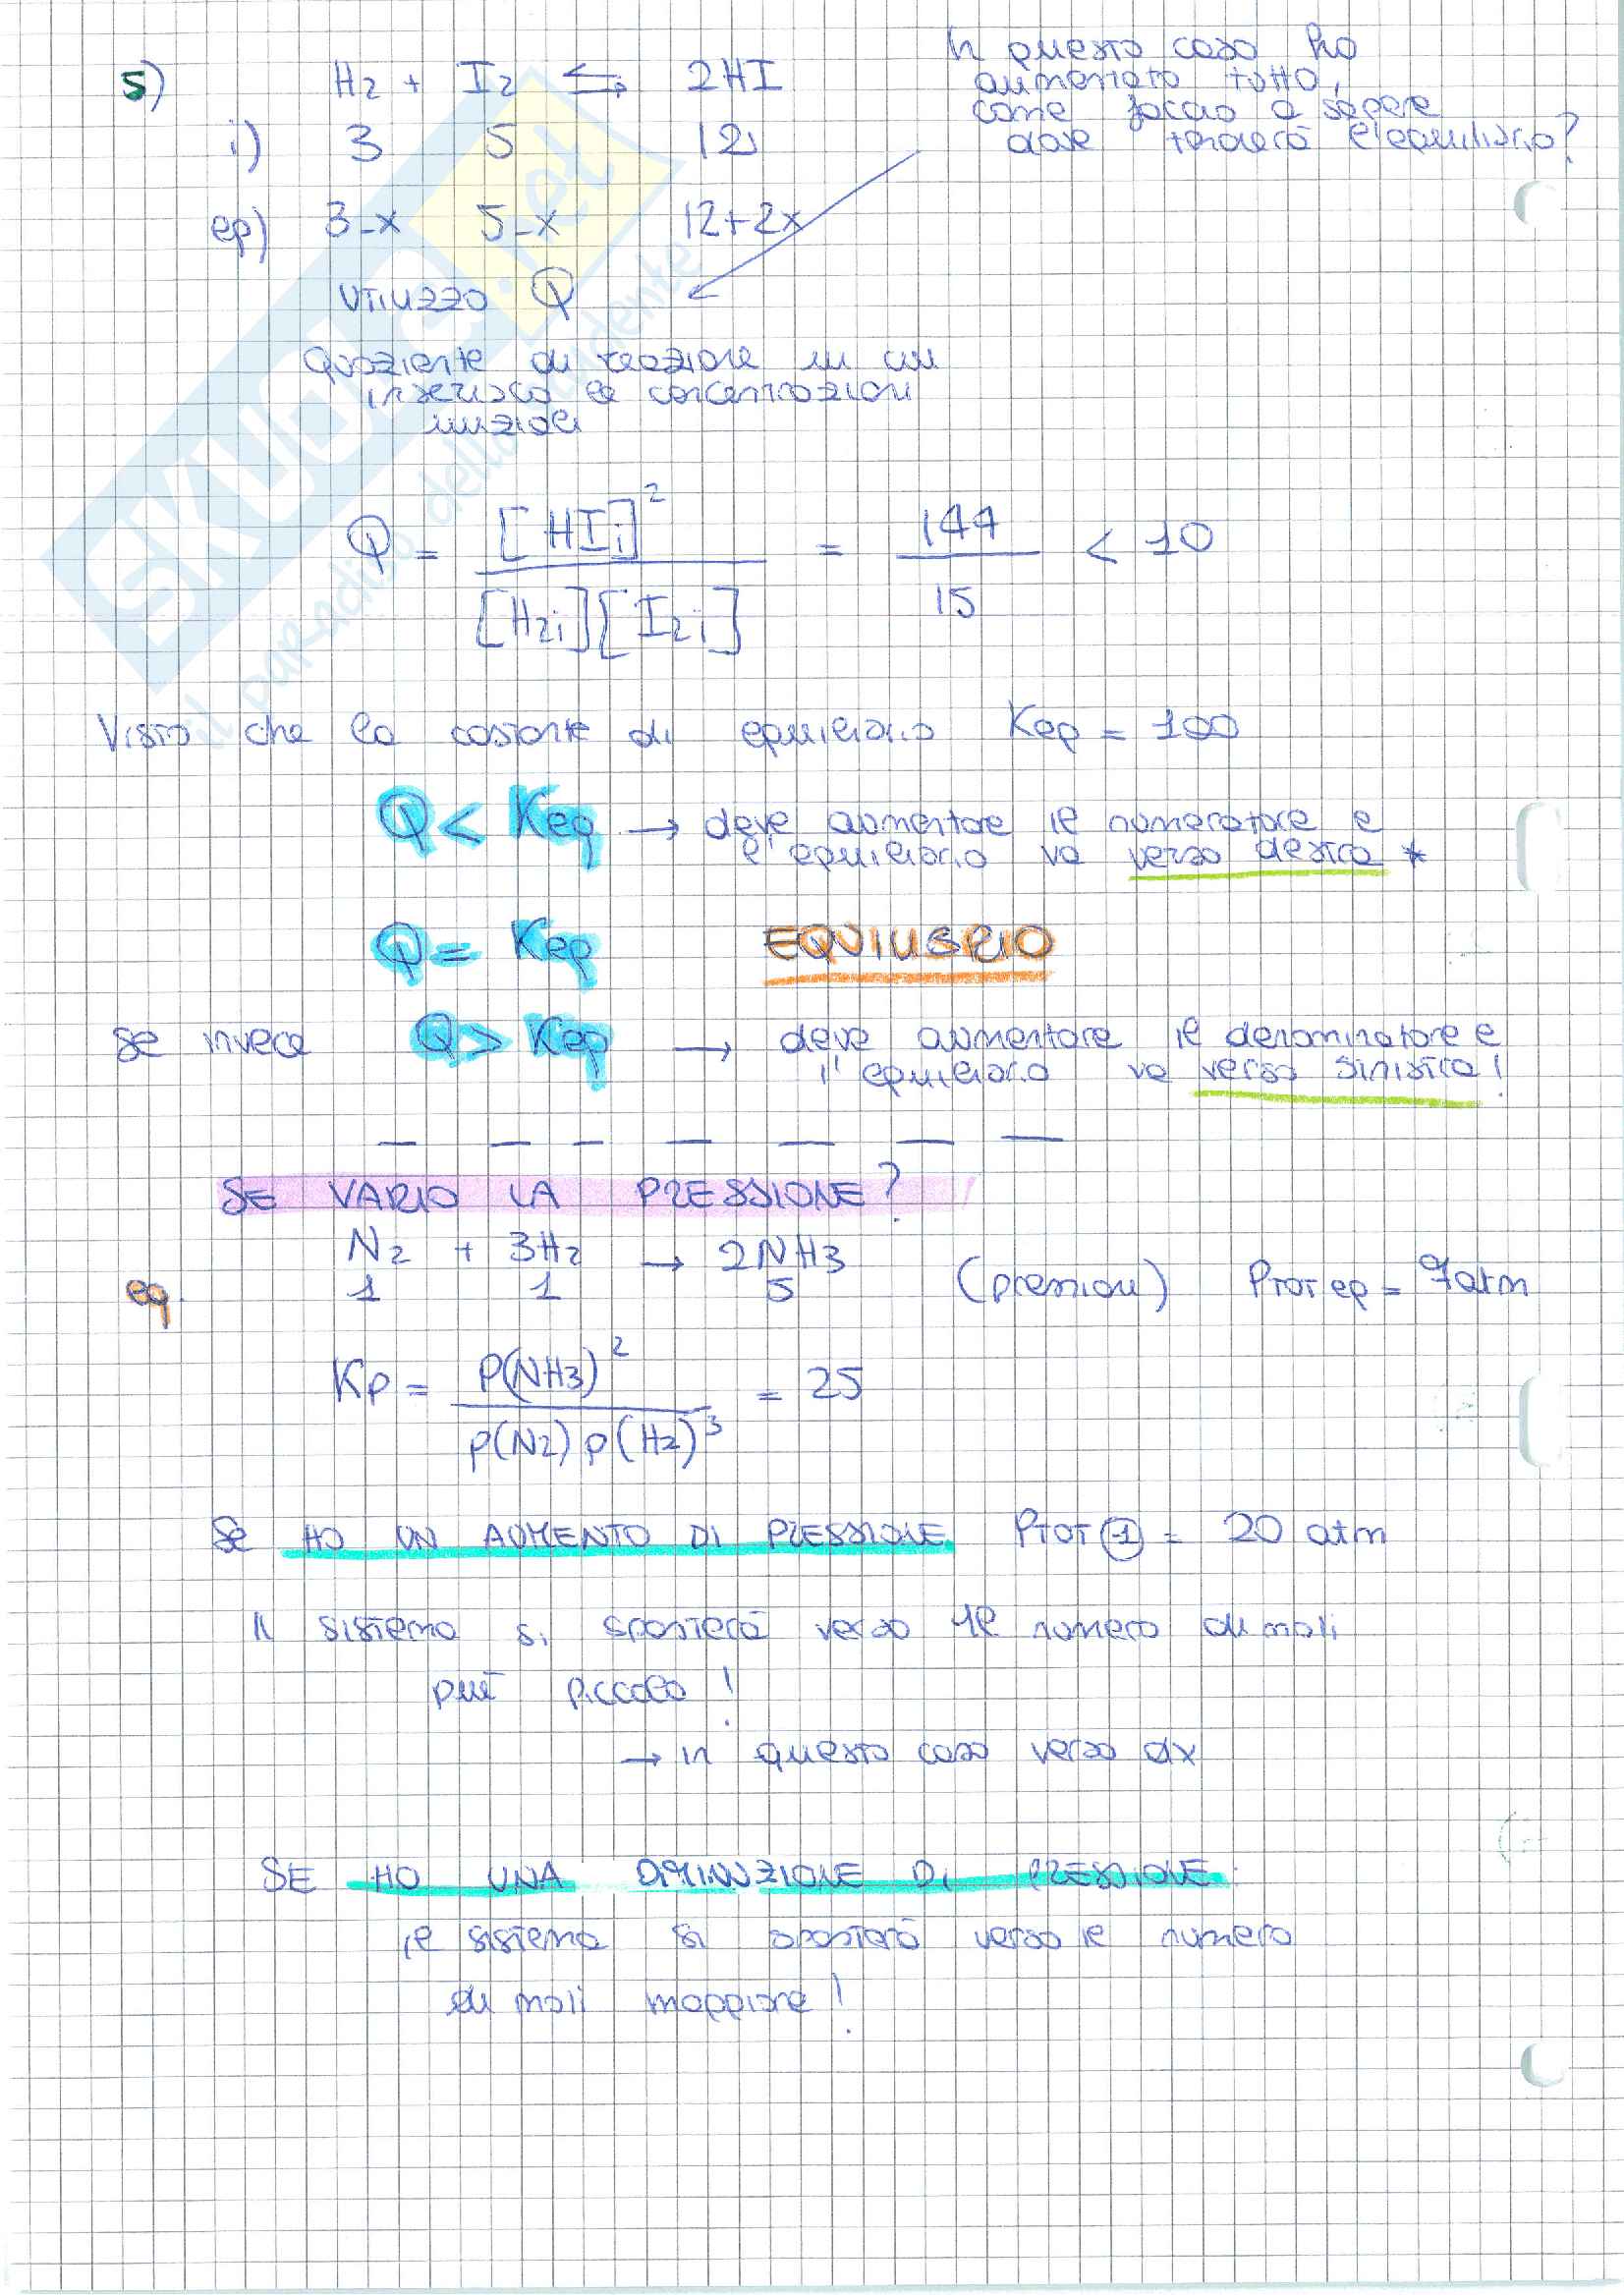 In questo caso ho
5) H2 + I2 ⇆ 2HI aumentato tutto,
come faccio a sapere
i) 3 5 12 dove tenderà l'equilibrio?
eq) 3-x 5-x 12+2x
UTILIZZO Q
Quoziente di reazione in cui
inserisco le concentrazioni
iniziali
Q = [HIi]² / [H2i][I2i] = 144 / 15 < 10
Visto che la costante di equilibrio Keq = 100
Q < Keq → deve aumentare il numeratore e
l'equilibrio va verso destra *
Q = Keq EQUILIBRIO
Se invece Q > Keq → deve aumentare il denominatore e
l'equilibrio va verso sinistra!
SE VARIO LA PRESSIONE?
N2 + 3H2 → 2NH3
eq. 1 1 5 (pressioni) PTOT eq = 7atm
Kp = P(NH3)² / p(N2) p(H2)³ = 25
Se HO UN AUMENTO DI PRESSIONE PTOT (1) = 20 atm
Il sistema si sposterà verso il numero di moli
più piccolo!
→ in questo caso verso dx
SE HO UNA DIMINUZIONE DI PRESSIONE:
il sistema si sposterà verso il numero
di moli maggiore!
SKUOLA.net
il paradiso dello studente